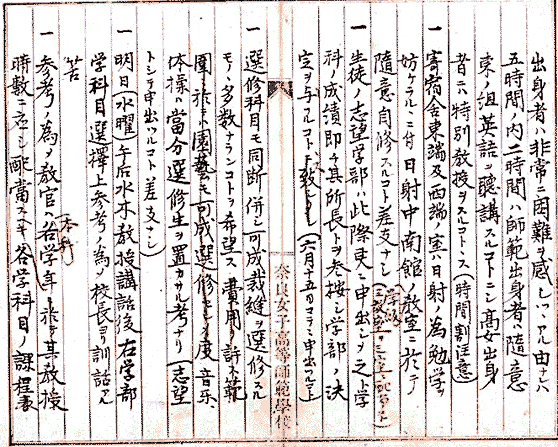 出身者ハ非常ニ困難ヲ感シツヽアル由ナレハ
五時間ノ内二時間ハ師範出身者ハ随意
東ノ組英語ヲ聴講スルコトニシ高女出身
者ニハ特別教授ヲスルコトヽス(時間割注意
一 寄宿舎東端及西端ノ室ハ日射ノ為勉学ヲ
妨ケラルヽニ付日射中南館ノ教室ニ於テ
随意自修スルコト差支ナシ
一 生徒ノ志望学部ハ此際更ニ申出シメ之ト学
科ノ成績即チ其所長トヲ参按シ学部ノ決
定ヲ与フルコトヽ致シタシ(六月十五日マテニ申出ツルコト
奈良女子高等師範學校
一 選修科目モ同断併シ可成裁縫ヲ選修スル
モノヽ多数ナランコトヲ希望ス 費用ノ許ス範
囲ニ於テ園藝モ可成選修セシメ度音乐、
体操ハ當分選修生ヲ置カサル考ナリ(志望
トシテ申出ツルコト差支ナシ
一 明日(水曜)午后水木教授講話後右学部
学科目選擇上参考ノ為メ校長ヨリ訓話アル
筈
一 参考ノ為メ教官ハ各学年ニ於テ其教授
本科
時数ニ応シ配當スヘキ各学科目ノ課程表